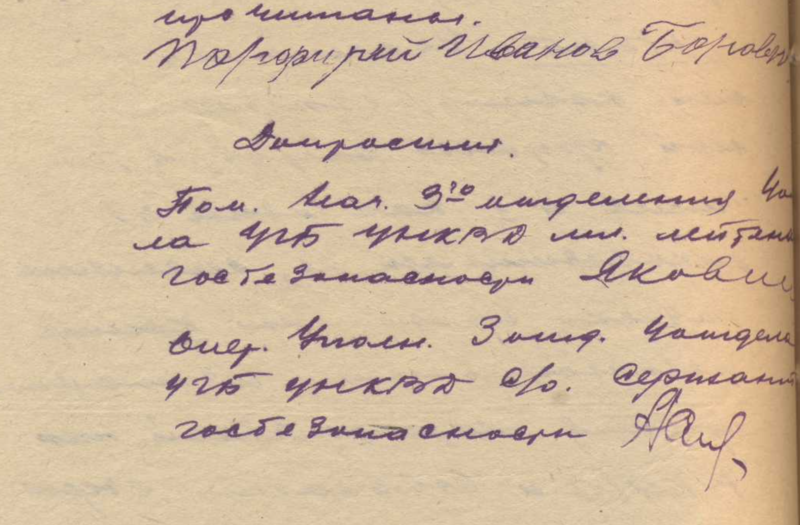 прочитаны.
Порфирий Иванов Боров
Допросили:
Пом. Нач. 3го отделения 4 о
ла УГБ УНКВД мл. лейтен
госбезопасности Яковле
Опер. Уполн. 3 отд. 4 отдела
УГБ УНКВД с/о. сержант
госбезопасности